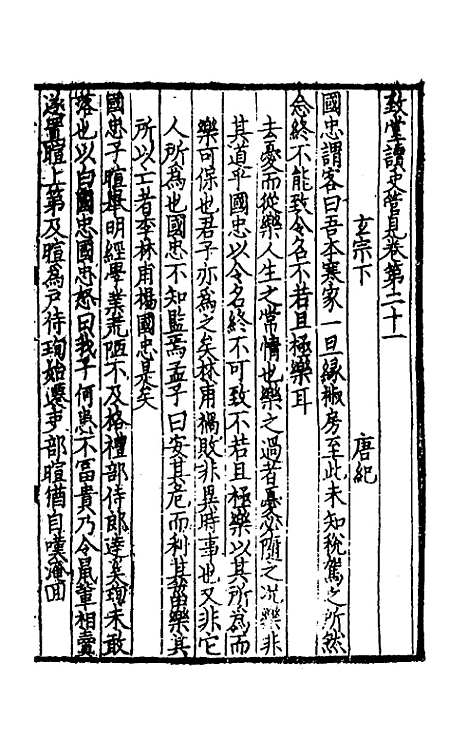 致堂讀史管見卷第二十一
玄宗下　唐紀
國忠謂客曰吾本寒家一旦縁椒房至此未知稅駕之所然
念終不能致令名不若且極樂耳
去憂而從樂人生之常情也樂之過者憂必隨之况樂非
其道乎國忠以令名終不可致不若且極樂以其所為而
樂可保也君子亦為之矣林甫禍敗非異時事也又非它
人所為也國忠不知監焉孟子曰安其危而利其菑樂其
所以亡者李林甫楊國忠是矣
國忠子暄舉明經學業荒陋不及格禮部侍郎逹奚珣未敢
落也以白國忠國忠怒曰我子何患不富貴乃令鼠輩相賣
遂置暄上第及暄為戶侍珣始遷吏部暄猶自嘆淹回